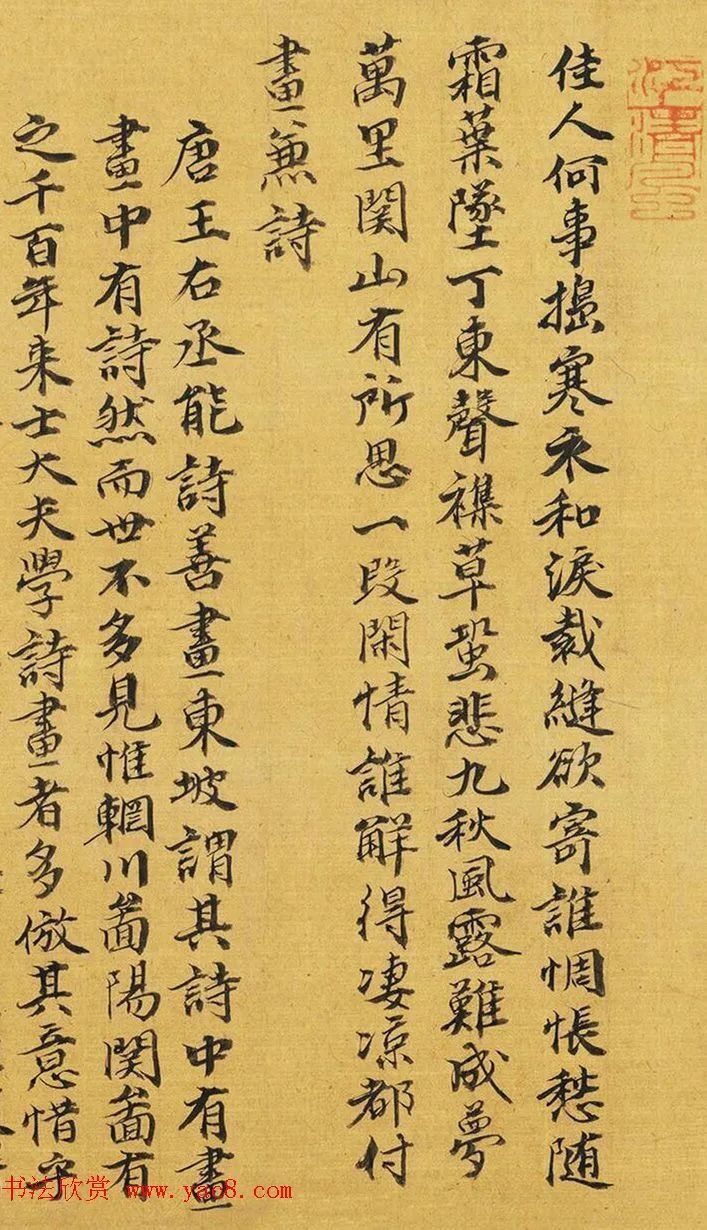 佳人何事搗寒衣和淚裁縫欲寄誰惆悵愁随
霜葉墜丁東聲襍草蛩悲九秋風露難成夢
萬里関山有所思一段閑情誰解得凄凉都付
畫蕪詩
唐王右丞能詩善畫東坡謂其詩中有畫
畫中有詩然而世不多見惟輞川啚陽関啚有
之千百年来士大夫學詩畫者多倣其意惜乎
书法欣赏 www.yac8.com